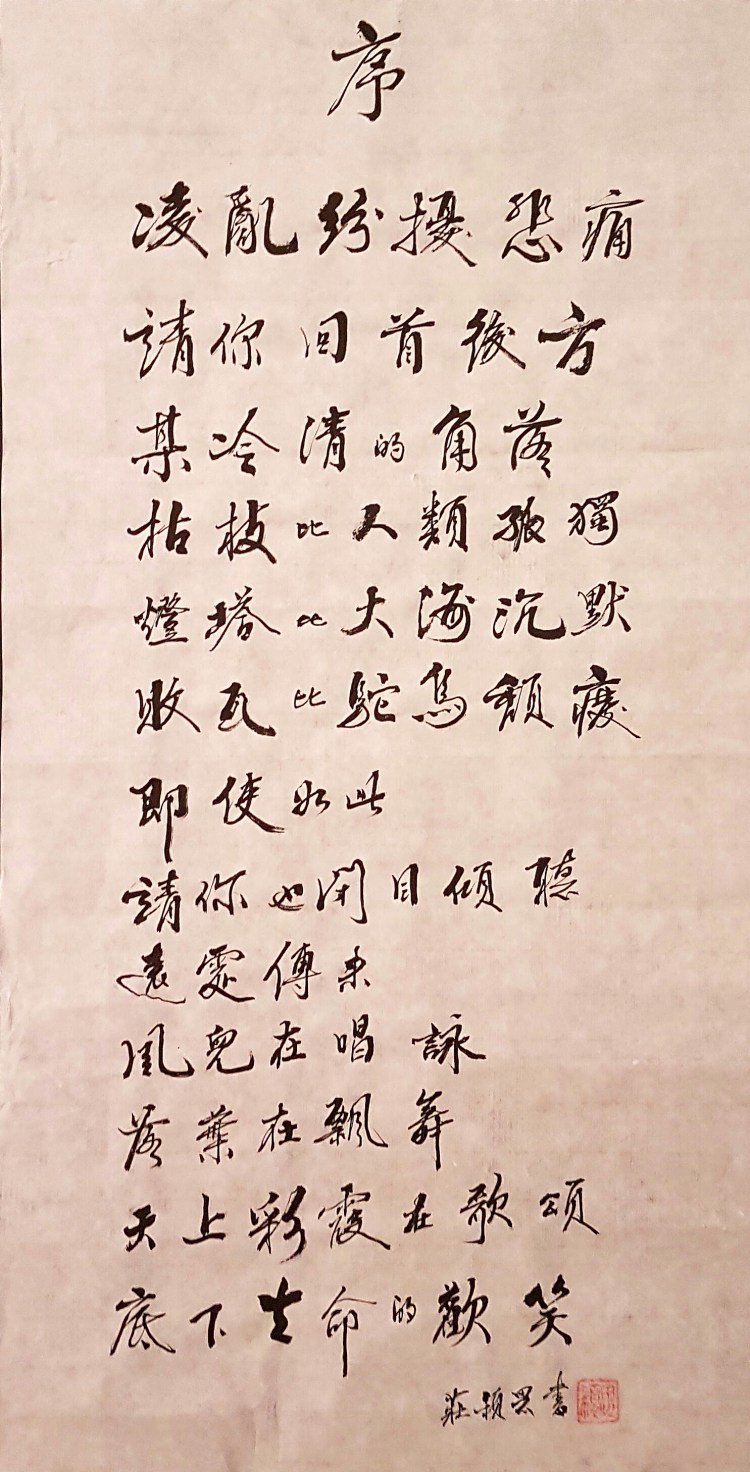 序
凌亂紛擾悲痛
請你回首後方
某冷清的角落
枯枝比人類孤獨
燈塔比大海沉默
敗瓦比駝鳥頹廢
即使如此
請你也閉目傾聽
遠處傳來
風兒在唱詠
落葉在飄舞
天上彩霞在歌頌
底下生命的歡笑
莊穎 書